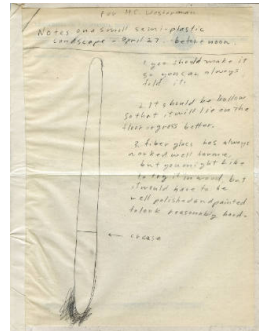 For H.C. Westermann
Notes on a small semi-plastic
landscape - April 27. before noon.
1. you should make it
so you can always
fold it.
2. It should be hollow
so that it will lie on the
floor or grass better.
3. fiber glass has always
worked well for me,
but you might like
to try it in wood, but
it would have to be
well polished and painted
to look reasonably hard.
crease